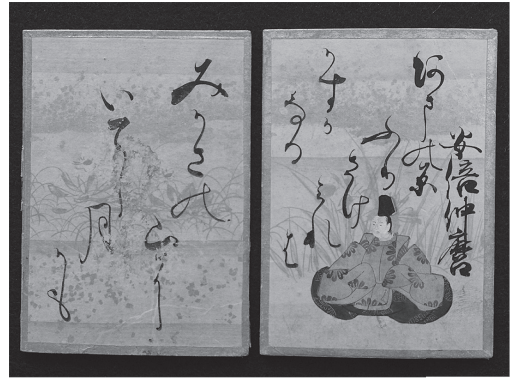 安倍仲麿
あまの原
ふり
さけ
みれは
かすか
なる
みかさの
山に
いてし
月
かも